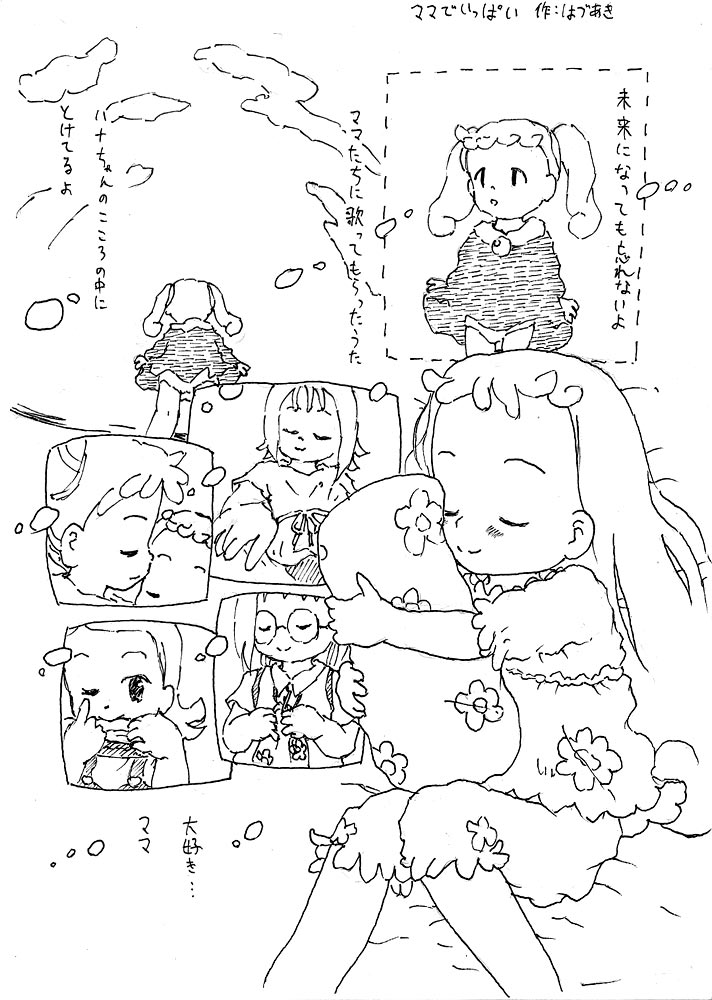 ママでいっぱい 作:はづあき
未来になっても忘れないよ
ママたちに歌ってもらったうた
ハナちゃんのこころの中に
とけてるよ
大好き…
ママ